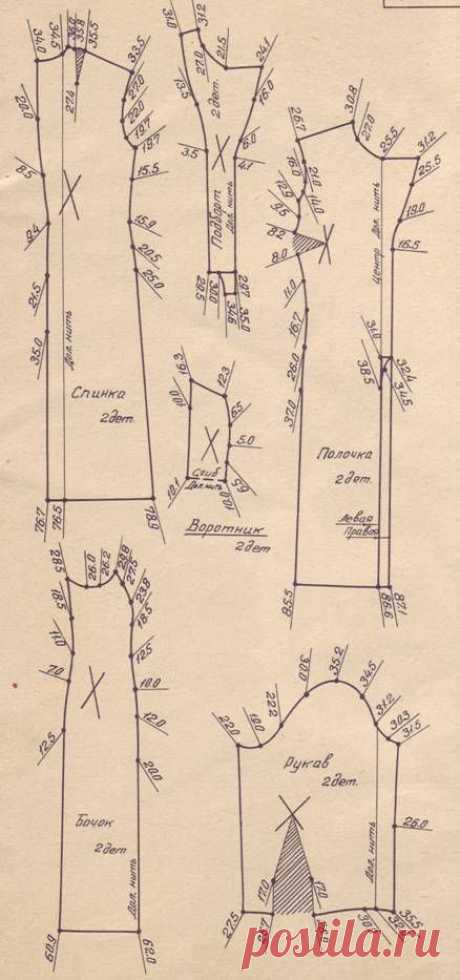 34.0
34.5
36.0
35.8
35.5
33.5
27.4
27.0
22.0
19.7
19.7
20.0
8.5
9.4
21.5
35.0
15.5
15.9
20.5
25.0
Дол. нить
Спинка
2 дет.
76.7
76.5
78.9
31.0
31.2
27.0
21.5
24.1
13.5
16.0
2 дет.
3.5
5.0
4.1
Подборт
Дол. нить
29.5
30.0
34.6
35.0
29.7
16.3
12.3
10.0
6.5
5.0
5.5
Сгиб
Дол. нить
10.1
10.0
Воротник
2 дет
30.8
26.7
27.0
25.5
31.2
25.5
19.0
16.5
16.0
21.0
12.9
14.0
9.5
8.2
8.0
11.0
16.7
26.0
37.0
Центр
Дол. нить
31.0
38.5
32.4
34.5
Полочка
2 дет.
Левая
Правая
85.5
86.6
87.1
28.5
26.0
26.2
29.8
27.5
23.8
18.5
18.5
11.0
12.5
7.0
10.0
12.0
12.5
20.0
Бочок
2 дет
Дол. нить
60.9
62.0
22.0
19.0
22.2
30.0
35.2
34.5
31.2
30.3
31.5
Рукав
2 дет.
26.0
17.0
17.0
Дол. нить
27.5
35.5
postila.ru